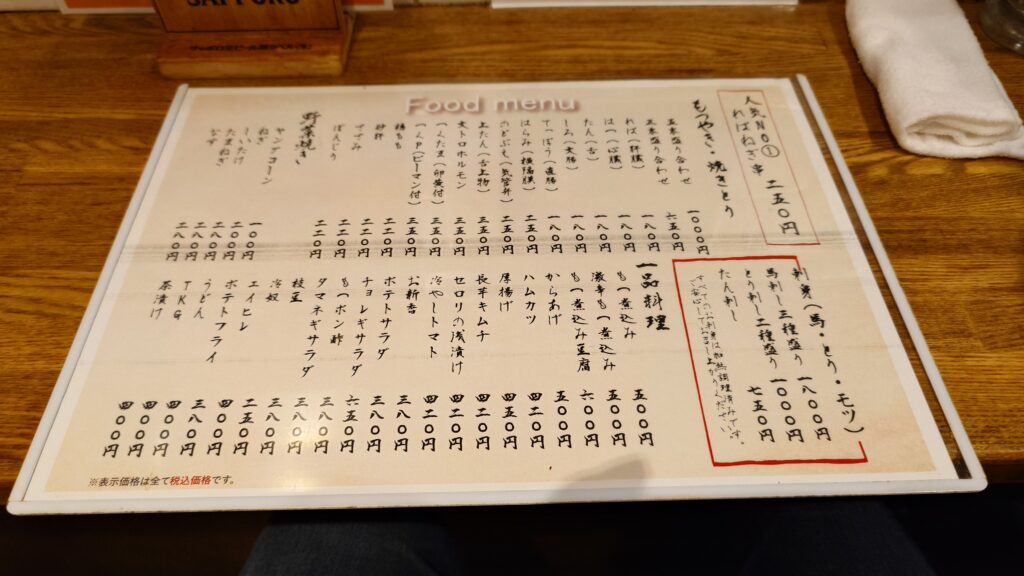 SAPPORO
Food menu
人気NO①
ればねぎ串 二五〇円
もつやき・焼きとり
五本盛り合わせ 一〇〇〇円
三本盛り合わせ 六五〇円
れば(肝臓) 一八〇円
はつ(心臓) 一八〇円
たん(舌) 一八〇円
しろ(大腸) 一八〇円
てっぽう(直腸) 一八〇円
はらみ(横隔膜) 二五〇円
のどぶえ(気管弁) 二五〇円
上たん(舌上物) 三五〇円
大トロホルモン 三五〇円
つくたま(卵黄付) 三五〇円
つくP(ピーマン付) 三五〇円
鶏もも 二二〇円
砂肝 二二〇円
二二〇円
ぼんじり 二二〇円
野菜焼き
ヤングコーン 一〇〇円
ねぎ 二〇〇円
しいたけ 二八〇円
たまねぎ 二八〇円
なす 二八〇円
刺身(馬・とり・モツ)
馬刺し三種盛り 一八〇〇円
とり刺し二種盛り 一〇〇〇円
たん刺し 七五〇円
すべてのお刺身は加熱調理済みです。
ご安心してお召し上がりくださいませ。
一品料理
もつ煮込み 五〇〇円
激辛もつ煮込み 五五〇円
もつ煮込み豆腐 六〇〇円
からあげ 五五〇円
ハムカツ 四二〇円
厚揚げ 四五〇円
長芋キムチ 四二〇円
セロリの浅漬け 四二〇円
冷やしトマト 四二〇円
お新香 三八〇円
ポテトサラダ 三八〇円
チョレギサラダ 六五〇円
もつポン酢 三八〇円
タマネギサラダ 三八〇円
枝豆 三八〇円
冷奴 二五〇円
エイヒレ 三八〇円
ポテトフライ 三八〇円
うどん 四〇〇円
TKG 四〇〇円
茶漬け 四〇〇円
※表示価格は全て税込価格です。